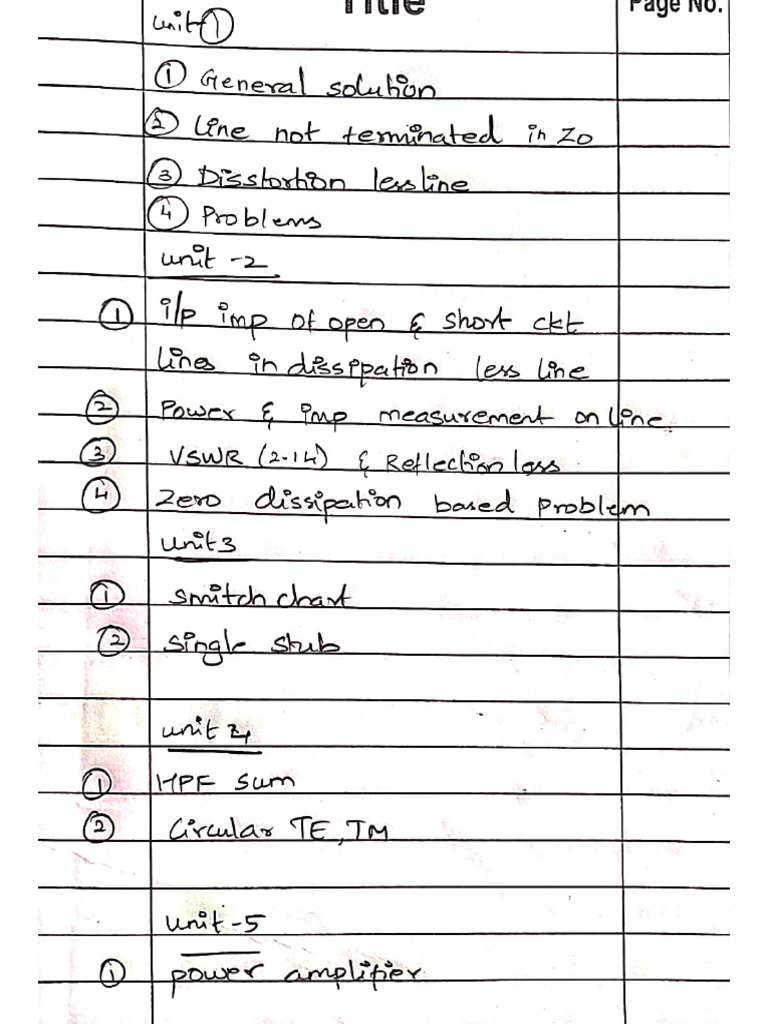 Title Page No.
unit ①
① General solution
② Line not terminated in Zo
③ Disstortion less line
④ Problems
unit -2
① i/p imp of open & short ckt
lines in dissipation less line
② Power & imp measurement on line
③ VSWR (2.14) & Reflection loss
④ Zero dissipation based problem
unit 3
① smitch chart
② single stub
unit 4
① HPF sum
② Circular TE, TM
unit -5
① power amplifier